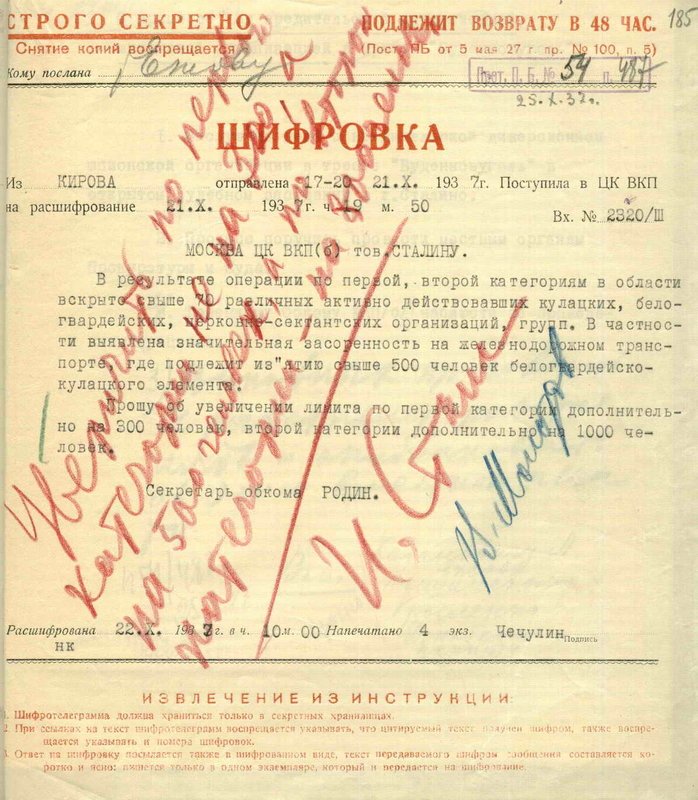 185
СТРОГО СЕКРЕТНО
Снятие копий воспрещается
ПОДЛЕЖИТ ВОЗВРАТУ В 48 ЧАС.
(Пост. ПБ от 5 мая 27 г. пр. № 100, п. 5)
Кому послана Ежову
Прот. П. Б. № 54 п. 487
25.X.37г.
ШИФРОВКА
Из КИРОВА отправлена 17-20 21.X. 1937г. Поступила в ЦК ВКП
на расшифрование 21.X. 1937г. ч. 19 м. 50
Вх. № 2320/Ш
МОСКВА ЦК ВКП(б) тов.СТАЛИНУ.
В результате операции по первой, второй категориям в области
вскрыто свыше 70 различных активно действовавших кулацких, бело-
гвардейских, церковно-сектантских организаций, групп. В частнос-
ти выявлена значительная засоренность на железнодорожном транс-
порте, где подлежит из"ятию свыше 500 человек белогвардейско-
кулацкого элемента.
Прошу об увеличении лимита по первой категории дополнитель-
но на 300 человек, второй категории дополнительно на 1000 че-
ловек.
Секретарь обкома РОДИН.
Увеличить по первой
категории не на 300 а
на 500 человек, а по второй
категории – на 800 человек
И. Сталин
В. Молотов
Расшифрована 22.X. 1937г. в ч. 10 м. 00 Напечатано 4 экз. Чечулин Подпись
нк
ИЗВЛЕЧЕНИЕ ИЗ ИНСТРУКЦИИ:
1. Шифротелеграмма должна храниться только в секретных хранилищах.
2. При ссылках на текст шифротелеграмм воспрещается указывать, что цитируемый текст получен шифром, также воспре-
щается указывать и номера шифровок.
3. Ответ на шифровку посылается также в шифрованном виде, текст передаваемого шифром сообщения составляется ко-
ротко и ясно; пишется только в одном экземпляре, который и передается на шифрование.